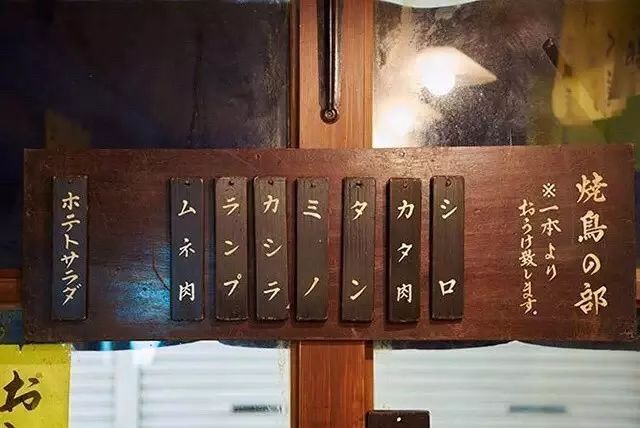 焼鳥の部
※一本より
おうけ致します。
シロ
カタ肉
タン
ミノ
カシラ
ランプ
ムネ肉
ホテトサラダ
お